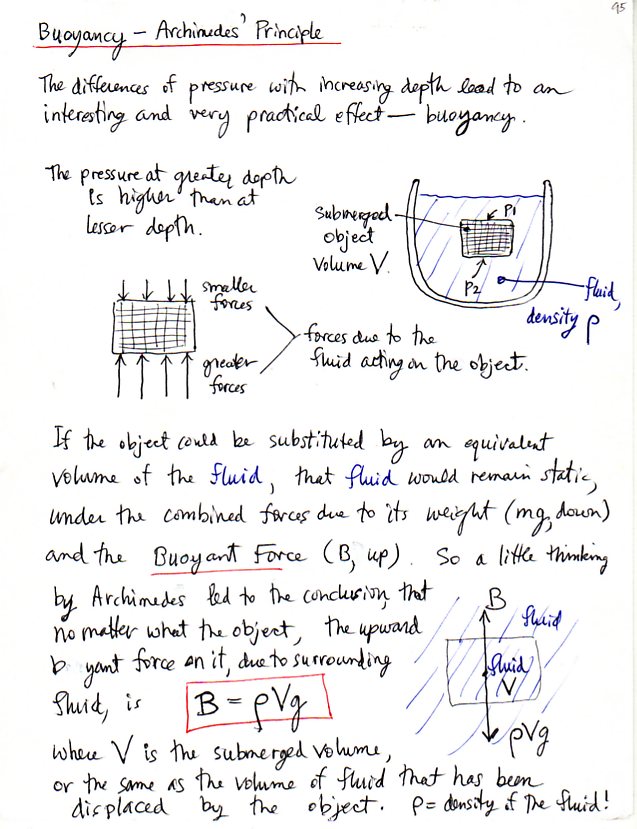 95
Buoyancy – Archimedes' Principle
The differences of pressure with increasing depth lead to an
interesting and very practical effect — buoyancy.
The pressure at greater depth
is higher than at
lesser depth.
Submerged
object
volume V.
P1
P2
fluid,
density ρ
smaller
forces
greater
forces
forces due to the
fluid acting on the object.
If the object could be substituted by an equivalent
volume of the fluid, that fluid would remain static,
under the combined forces due to its weight (mg, down)
and the Buoyant Force (B, up). So a little thinking
by Archimedes led to the conclusion, that
no matter what the object, the upward
b yant force on it, due to surrounding
fluid, is B = ρVg
B
fluid
fluid
V
ρVg
where V is the submerged volume,
or the same as the volume of fluid that has been
displaced by the object. ρ = density of the fluid!